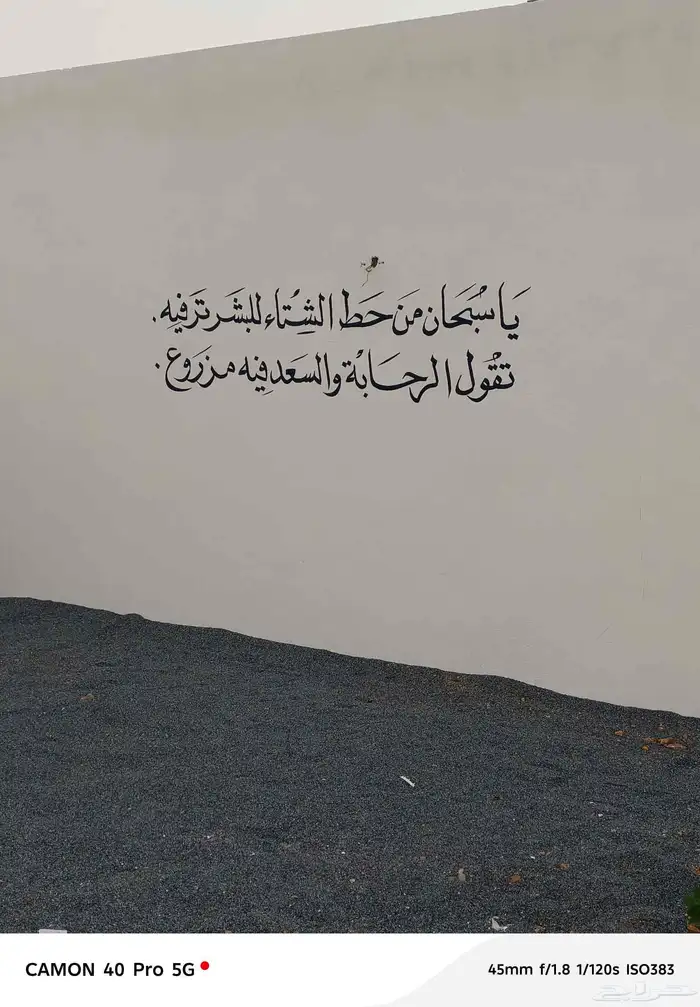 يَا سُبْحَان مَن حَط الشِتاء للبشَر تَرفيه.
تقُول الرحَابْة والسَعد فِيه مزرَوع.
CAMON 40 Pro 5G
45mm f/1.8 1/120s ISO383
حراج